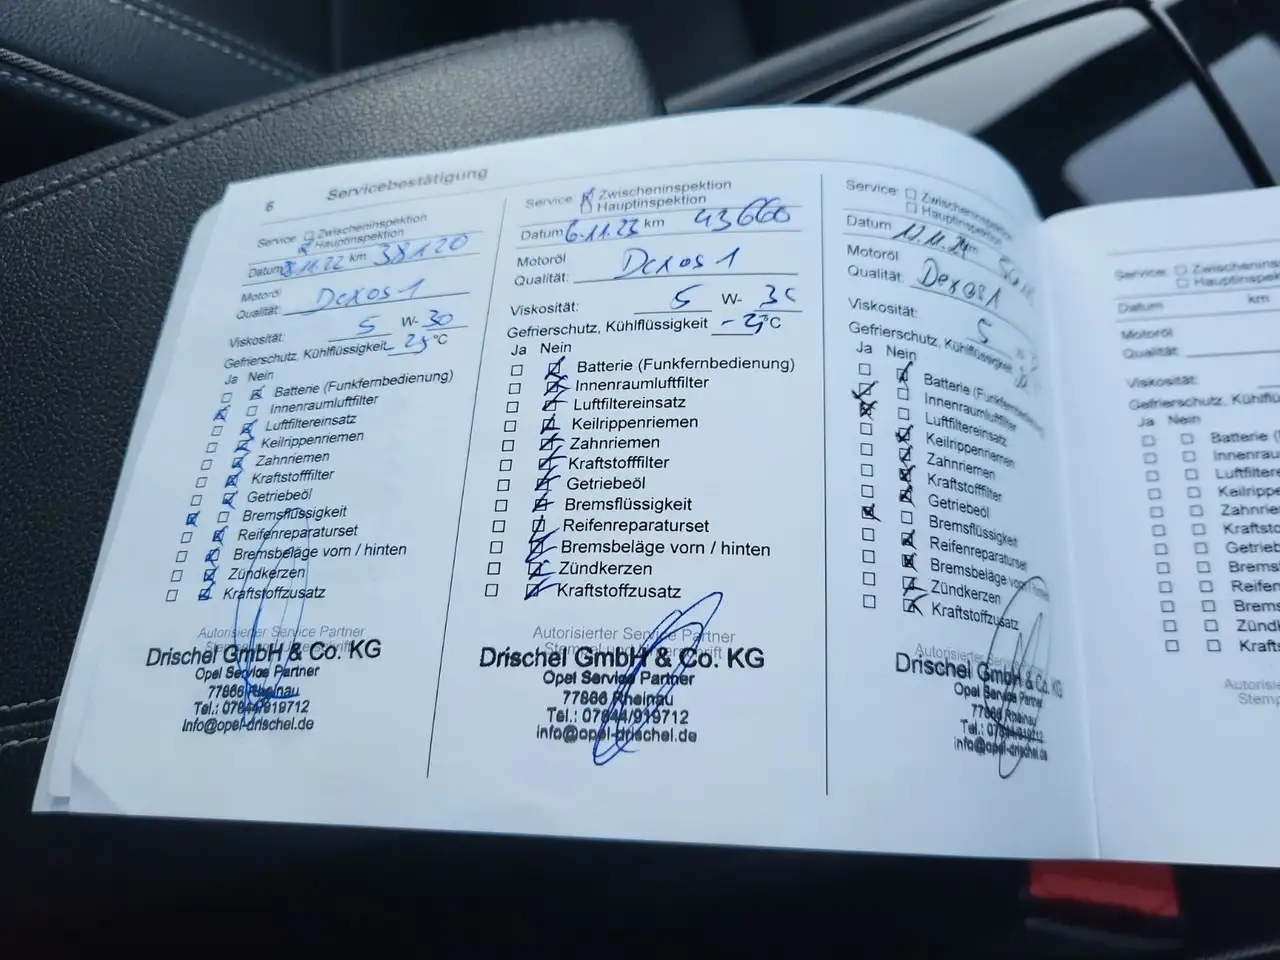 6 Servicebestätigung
Service: Zwischeninspektion
Hauptinspektion
Datum 8.11.22 km 38120
Motoröl
Qualität: Dexos 1
Viskosität: 5 W- 30
Gefrierschutz, Kühlflüssigkeit °C
Ja Nein
Batterie (Funkfernbedienung)
Innenraumluftfilter
Luftfiltereinsatz
Keilrippenriemen
Zahnriemen
Kraftstofffilter
Getriebeöl
Bremsflüssigkeit
Reifenreparaturset
Bremsbeläge vorn / hinten
Zündkerzen
Kraftstoffzusatz
Autorisierter Service Partner
Drischel GmbH & Co. KG
Opel Service Partner
77866 Rheinau
Tel.: 07844/919712
info@opel-drischel.de
Service: Zwischeninspektion
Hauptinspektion
Datum 6.11.23 km 43660
Motoröl
Qualität: Dexos 1
Viskosität: 5 W- 30
Gefrierschutz, Kühlflüssigkeit °C
Ja Nein
Batterie (Funkfernbedienung)
Innenraumluftfilter
Luftfiltereinsatz
Keilrippenriemen
Zahnriemen
Kraftstofffilter
Getriebeöl
Bremsflüssigkeit
Reifenreparaturset
Bremsbeläge vorn / hinten
Zündkerzen
Kraftstoffzusatz
Autorisierter Service Partner
Stempel und Unterschrift
Drischel GmbH & Co. KG
Opel Service Partner
77866 Rheinau
Tel.: 07844/919712
info@opel-drischel.de
Service: Zwischeninspektion
Hauptinspektion
Datum 11.11.24 km
Motoröl
Qualität: Dexos 1
Viskosität: 5
Gefrierschutz, Kühlflüssigkeit
Ja Nein
Batterie
Innenraumluftfilter
Luftfiltereinsatz
Keilrippenriemen
Zahnriemen
Kraftstofffilter
Getriebeöl
Bremsflüssigkeit
Reifenreparaturset
Bremsbeläge
Zündkerzen
Kraftstoffzusatz
Autorisierter Service
Drischel GmbH & Co. KG
Opel Service Partner
77866 Rheinau
Tel.:
info@opel-drischel.de
Service: Zwischenins
Hauptinspek
Datum km
Motoröl
Qualität:
Viskosität:
Gefrierschutz, Kühlflü
Ja Nein
Batterie
Innenrau
Luftfiltere
Keilrippe
Zahnrie
Kraftsto
Getrieb
Brems
Reifen
Brems
Zünd
Krafts
Autoris
Stemp